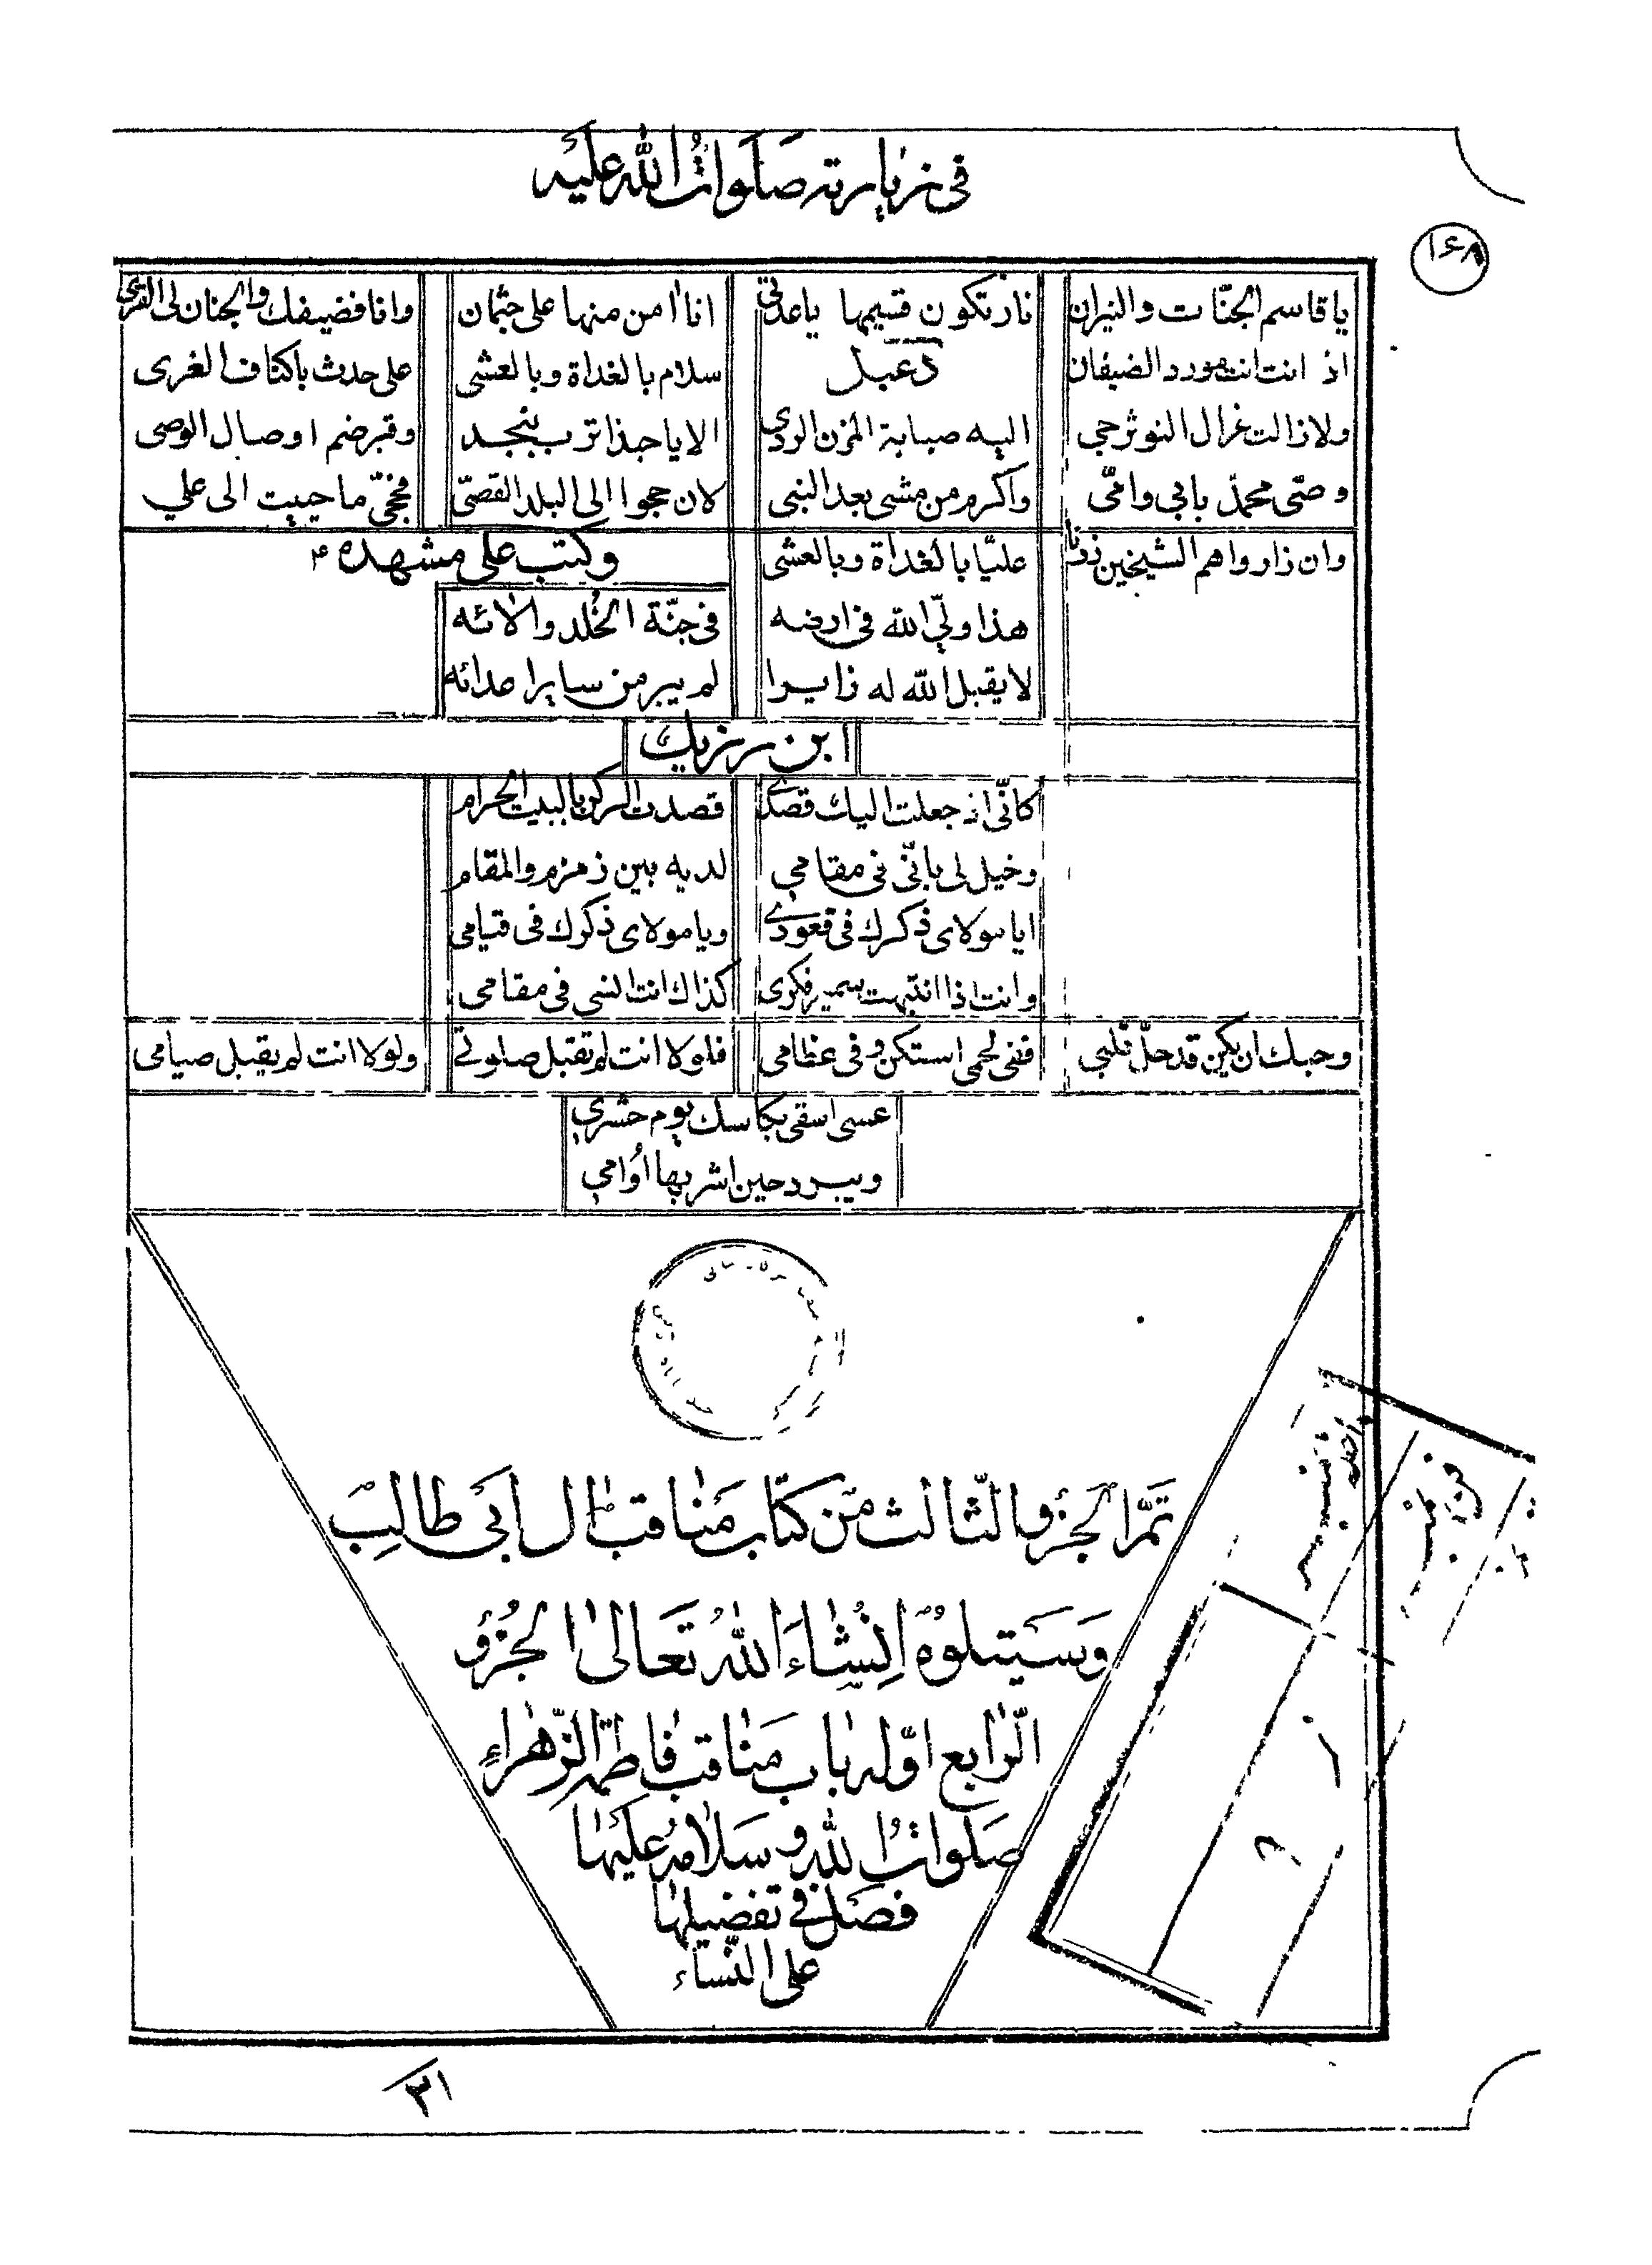 في زيارته صلوات الله عليه
١٦٨
يا قاسم الجنّات والنيران نار تكون قسيمها يا عدتي انا امن منها على جثمان وانا فضيفك والجنان لي القرى
اذ انت انت مورد الضيفان
دعبل
سلام بالغداة وبالعشى على جدث باكناف الغرى
ولا زالت غزال النو ترجى اليه صبابة المزن الروى الا يا حبذا ترب بنجد وقبر ضم اوصال الوصى
وصّى محمدّ بابي وامّى واكرم من مشى بعد النبى لان حجوا الى البلد القصىّ فحجّى ما حييت الى علي
وان زاروا هم الشيخين زرنا عليّا بالغداة وبالعشى
وكتب على مشهده ع
هذا وليّ الله في ارضه في جنّة الخُلد والائه
لا يقبل الله له زايرا لم يبر من ساير اعدائه
ابن رزيك
كانّى اذ جعلت اليك قصدى قصدت الركن بالبيت الحرام
وخيل لى بانّى فى مقامي لديه بين زمزم والمقام
ايا مولاى ذكرك فى قعودى ويا مولاى ذكرك فى قيامى
وانت اذا انتبهت سمير فكرى كذاك انت انسى فى مقامى
وحبك ان يكن قد حلّ قلبي ففى لحمى استكن وفى عظامى فلولا انت لم تقبل صلوتى ولولا انت لم يقبل صيامى
عسى اسقى بكاسك يوم حشري
ويبرد حين اشربها اُوامي
تمَّ الجزؤ الثّالث من كتاب مَناقب ال ابَي طالِب
وَسَيتلوُه اِنشاءَ اللهُ تَعالى الجُزؤ
الرّابع اوّله باب مَناقب فاطمة الزّهراءِ
صَلَواتُ الله وسَلامُه عَليَها
فصَل في تفضيلها
على النّساء
٣١